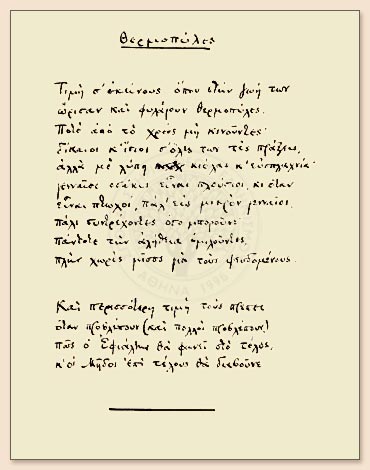 Θερμοπύλες
Τιμή σ' εκείνους όπου στην ζωή των
ώρισαν και φυλάγουν Θερμοπύλες.
Ποτέ από το χρέος μη κινούντες·
δίκαιοι κ' ίσιοι σ' όλες των τες πράξεις,
αλλά με λύπη κιόλας κ' ευσπλαχνία·
γενναίοι οσάκις είναι πλούσιοι, κι όταν
είναι πτωχοί, πάλ' εις μικρόν γενναίοι,
πάλι συντρέχοντες όσο μπορούνε·
πάντοτε την αλήθεια ομιλούντες,
πλην χωρίς μίσος για τους ψευδομένους.
Και περισσότερη τιμή τους πρέπει
όταν προβλέπουν (και πολλοί προβλέπουν)
πως ο Εφιάλτης θα φανεί στο τέλος,
κ' οι Μήδοι επί τέλους θα διαβούνε
ΑΘΗΝΑ